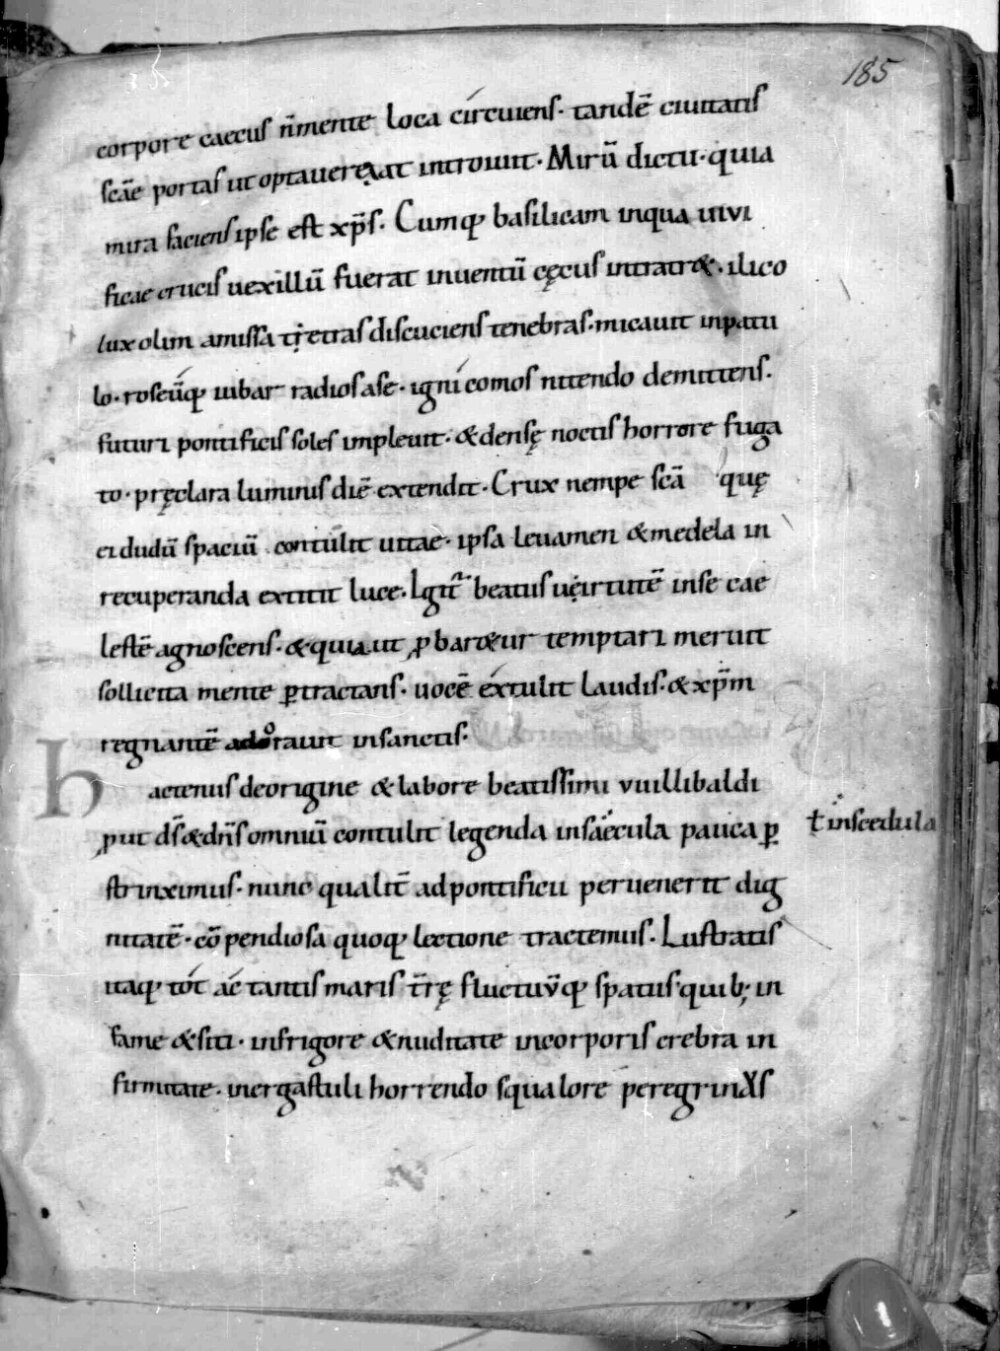 185
corpore caecus n̄ mente loca circuiens · tandē ciuitatis
scāe portas ut optauerat introiuit · Mirū dictu · quia
mira faciens ipse est xp̄s · Cumq; basilicam inqua uivi
ficae crucis uexillū fuerat inuentū cęcus intrar& · ilico
lux olim amissa tetras discuciens tenebras · micauit inpatu
lo · roseūq; iubar radiosase · ignicomos nitendo demittens ·
futuri pontificis soles impleuit · & densę noctis horrore fuga
to · pręclara luminis diē extendit · Crux nempe scā quę
ei dudū spaciū contulit uitae · ipsa leuamen & medela in
recuperanda extitit luce · Igit̄ beatus uirtutē inse cae
lestē agnoscens · & quia ut ꝓbar&ur temptari meruit
sollicita mente ꝑtractans · uocē extulit laudis · & xp̄m
regnantē adorauit insanctis ·
hactenus deorigine & labore beatissimi vuillibaldi
ꝓut ds̄ & dn̄s omniū contulit legenda insaecula pauca ꝑ
ł inscedula
strinximus · nunc qualit̄ adpontificii peruenerit dig
nitatē · cōpendiosa quoq; lectione tractemus · Lustratis
itaq; tot ac tantis maris t̄rę fluctuv̄q; spatiis quib; in
fame & siti · infrigore & nuditate incorporis crebra in
firmitate · inergastuli horrendo squalore peregrinus